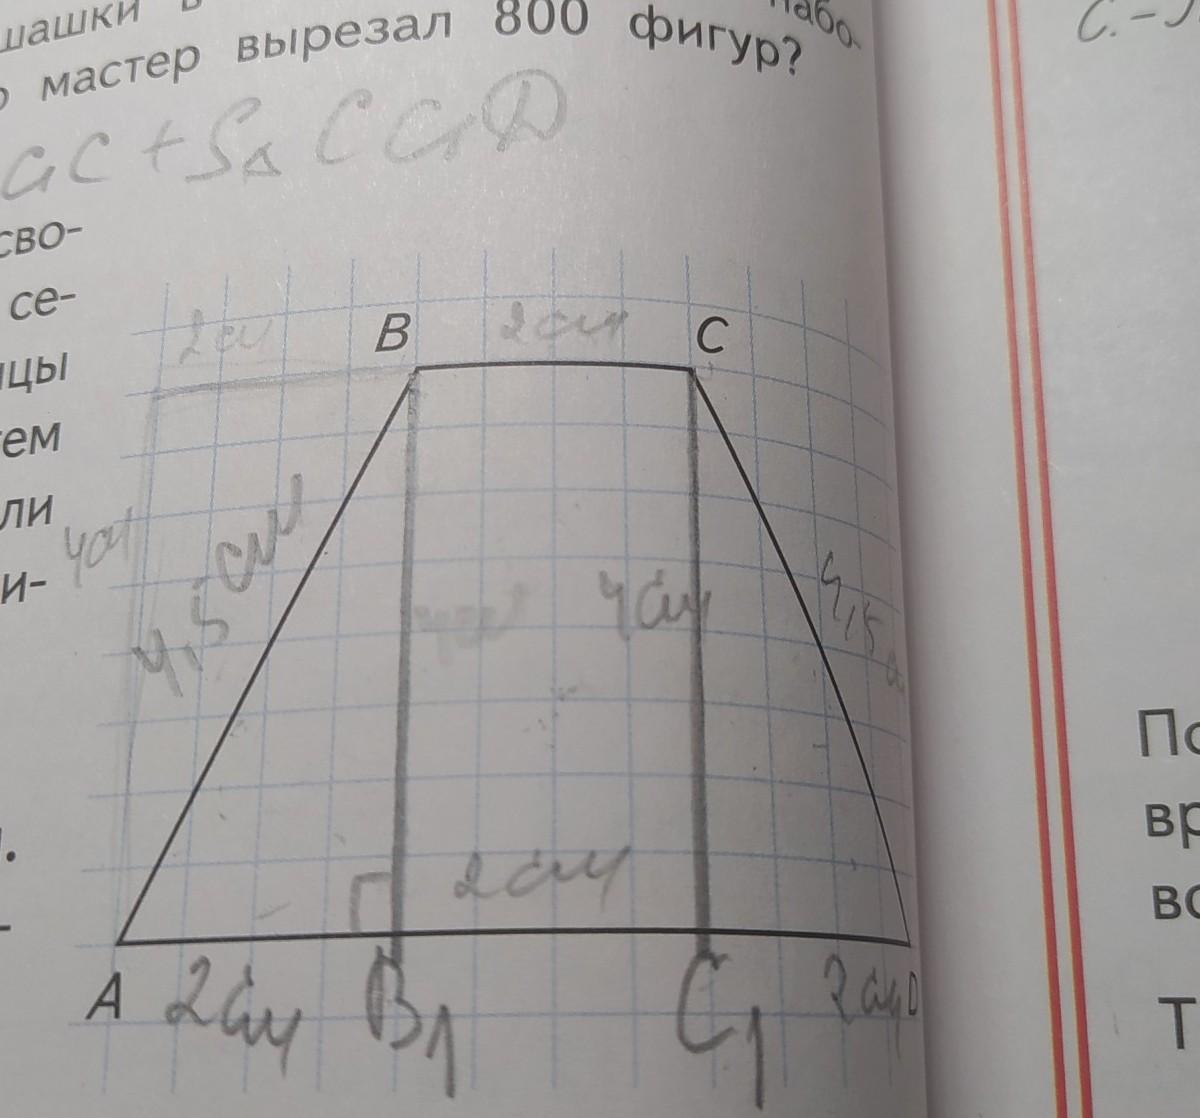 шашки в
мастер вырезал 800 фигур?
C.-
C1C + S△ CC1D
сво-
се-
ем
ли
и-
2см
B
2см
C
4см
4,5 см
4см
4см
4,5
2см
A
2см
B1
C1
2см
D
По
вр
во
Т